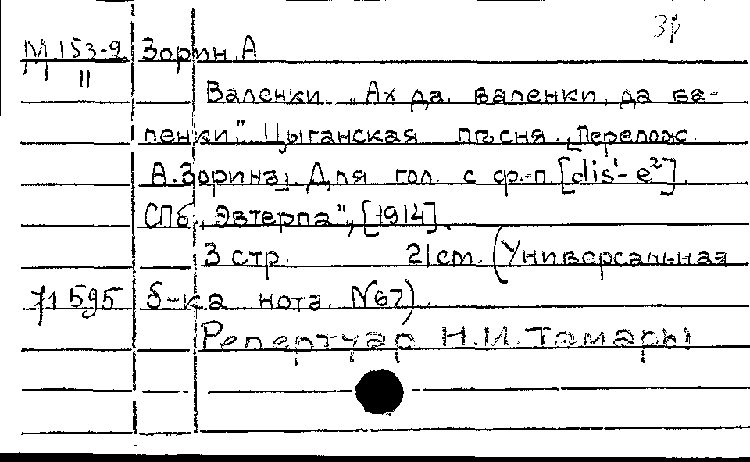 3р
М 153-2 Зорин. А
II
Валенки „Ах да, валенки, да ва-
ленки". Цыганская пѣсня. [Перелож.
А. Зорина]. Для гол. с ф.-п. [dis¹-e²].
СПб, „Эвтерпа", [1914].
3 стр. 21 cm. (Универсальная
71 595 б-ка нота N67).
Репертуар Н.И. Тамары